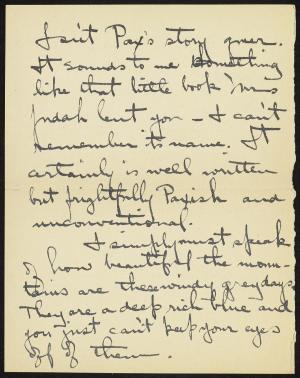 Isn't Pax's story queer.
It sounds to me something
like that little book Mrs
Judah lent you – I can't
remember to name. It
certainly is well written
but frightfully Paxish and
unconventional.
I simply must speak
of how beautiful the moun-
tains are these windy grey days.
They are a deep rich blue and
you just can't keep your eyes
off of them.